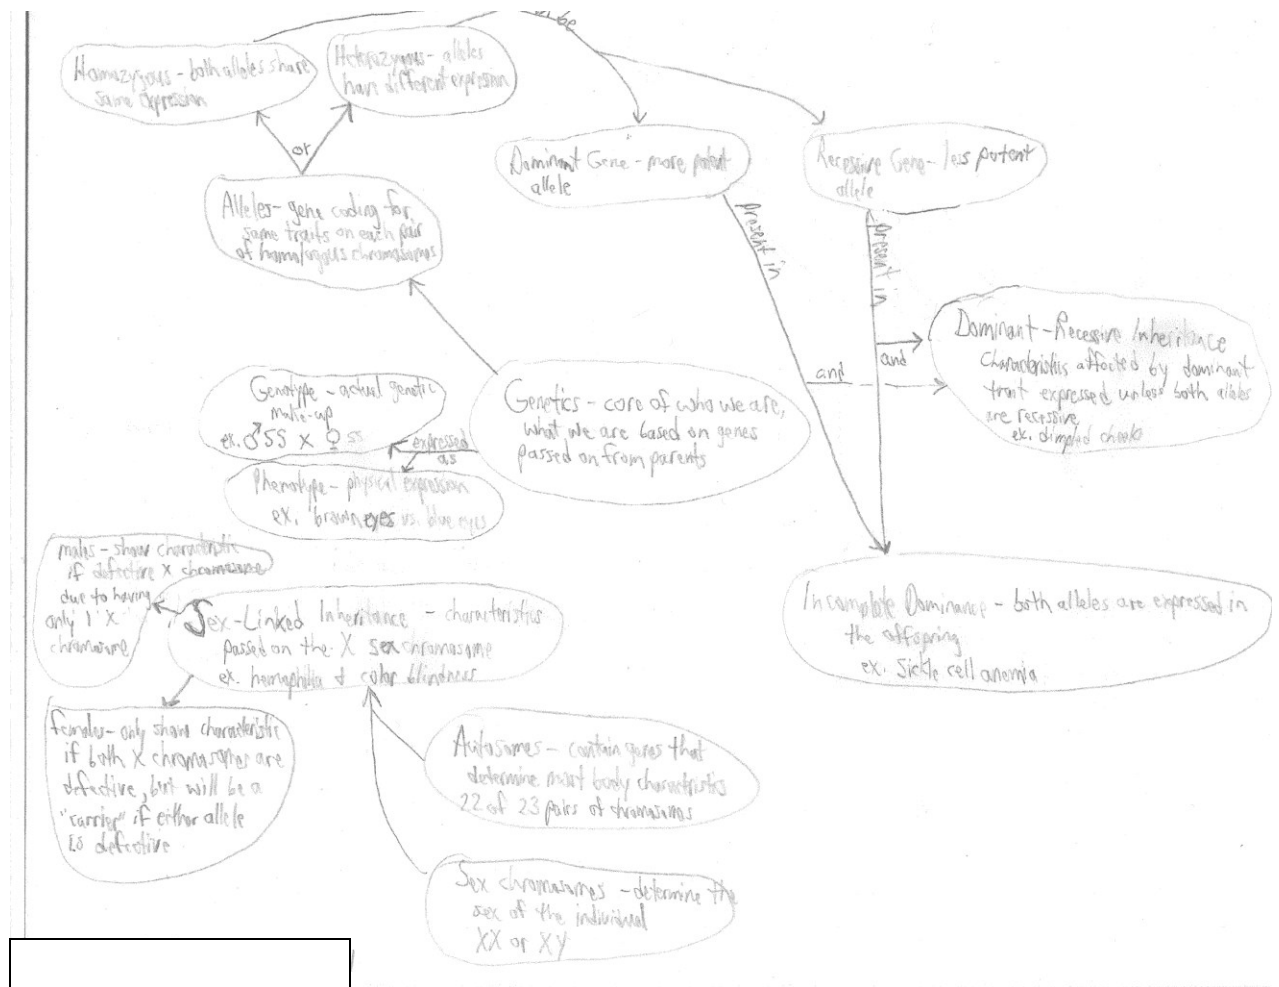 be
Homozygous - both alleles share
same expression
Heterozygous - alleles
have different expression
or
Alleles - gene coding for
same traits on each pair
of homologous chromosomes
Dominant Gene - more potent
allele
Recessive Gene - less potent
allele
present in
present in
and
and
Dominant - Recessive Inheritance
Characteristics affected by dominant
trait expressed unless both alleles
are recessive
ex. dimpled cheeks
Genotype - actual genetic
make-up
ex. ♂ SS X ♀ ss
expressed
as
Phenotype - physical expression
ex. brown eyes vs. blue eyes
Genetics - core of who we are,
what we are based on genes
passed on from parents
males - show characteristic
if defective X chromosome
due to having
only 1 "X"
chromosome
Sex-Linked Inheritance - characteristics
passed on the X sex chromosome
ex. hemophilia & color blindness
females - only show characteristic
if both X chromosomes are
defective, but will be a
"carrier" if either allele
is defective
Incomplete Dominance - both alleles are expressed in
the offspring
ex. Sickle cell anemia
Autosomes - contain genes that
determine most body characteristics
22 of 23 pairs of chromosomes
Sex chromosomes - determine the
sex of the individual
XX or XY